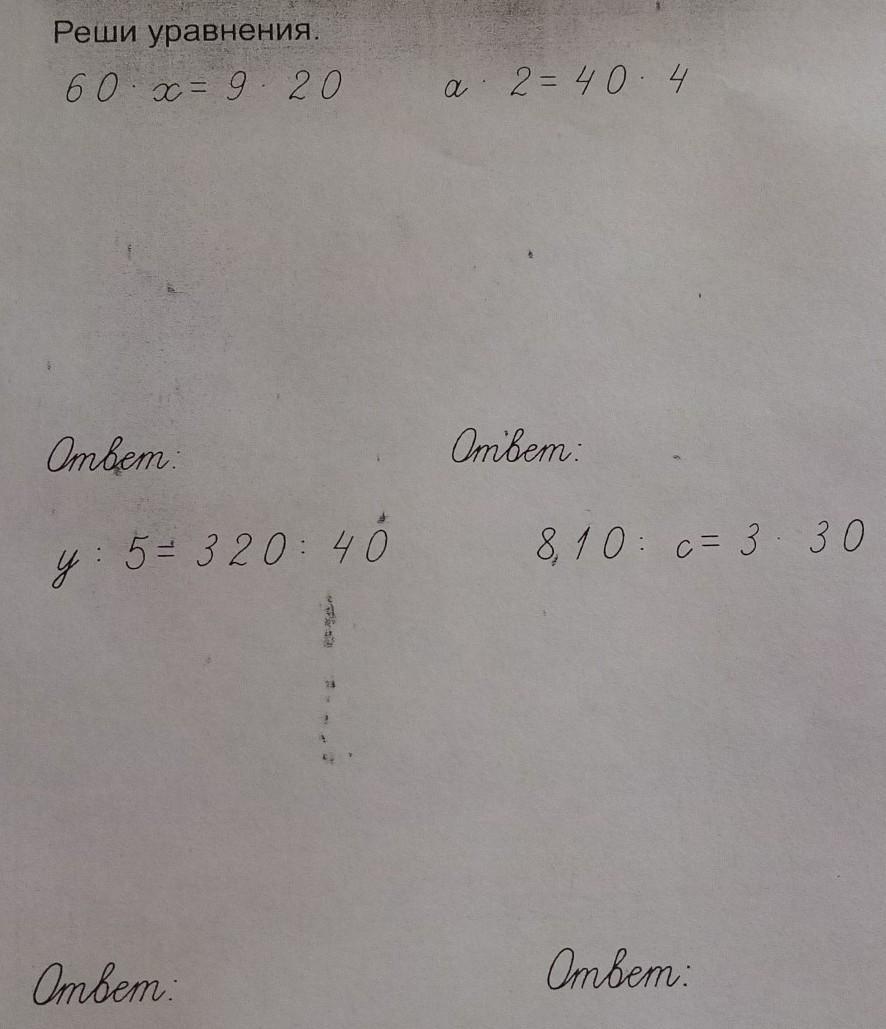 Реши уравнения.
60 · x = 9 · 20 a · 2 = 40 · 4
Ответ: Ответ:
y : 5 = 320 : 40 8,10 : c = 3 · 30
Ответ: Ответ: